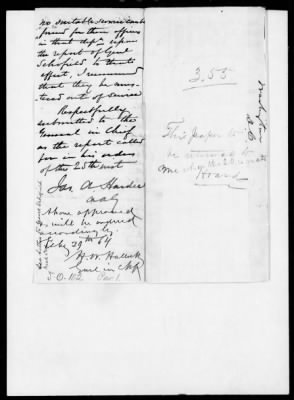 no suitable service can be
found for these officers
in that Dept. upon
the report of Genl
Schofield to that
effect, I recommend
that they be mus-
tered out of service
Respectfully
submitted to the
General in Chief
as the report called
for in his orders
of the 25th inst
Jas A Hardie
AAG
Above approved
& will be ordered
accordingly.
Feby 29th 64
H. W. Halleck
Genl in Chf
S-O-102 Par 1.
3.55
This paper to
be returned to
me
Board